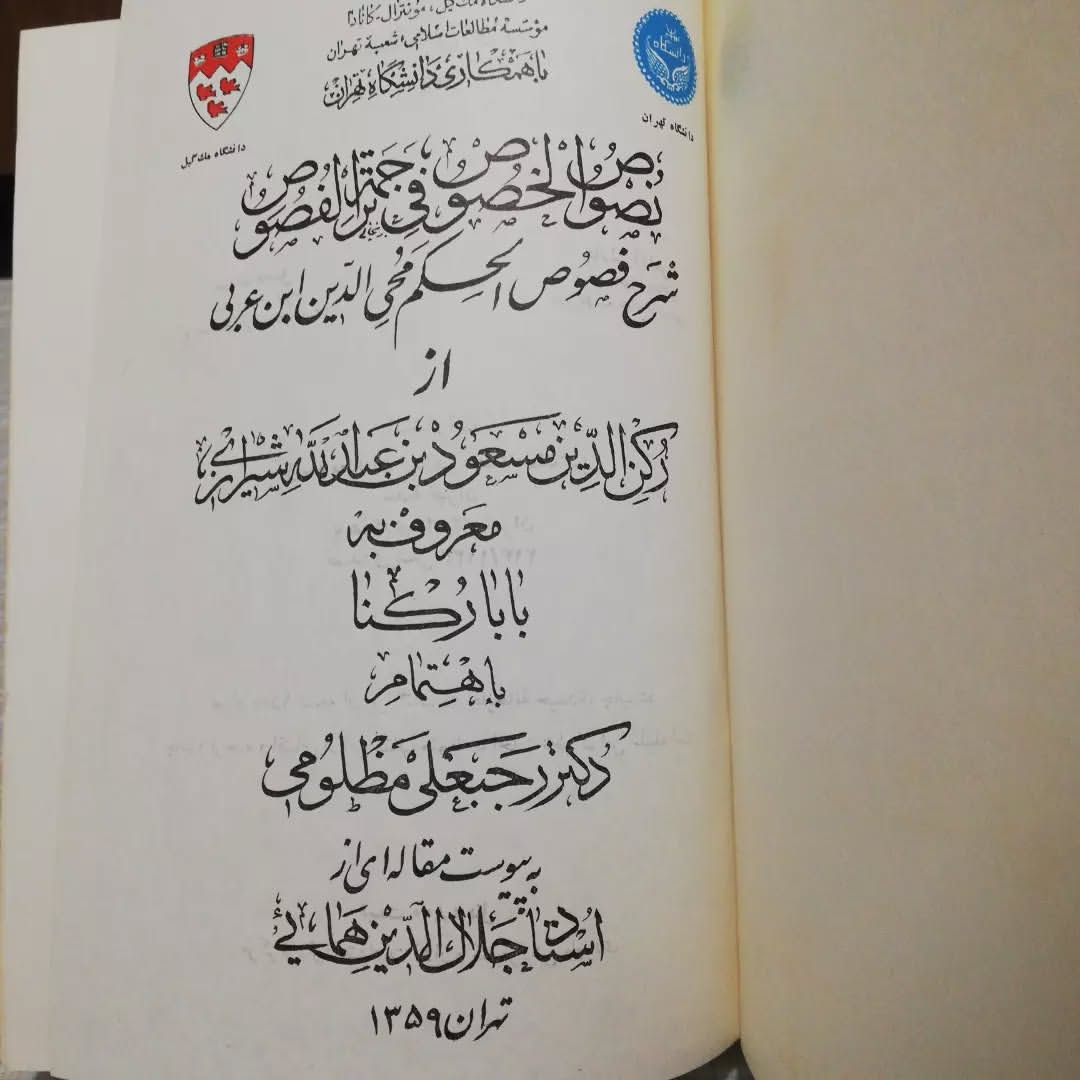 دانشگاه مك گیل، مونترال-کانادا
مؤسسهٔ مطالعات اسلامی، شعبهٔ تهران
با همکاری دانشگاه تهران
دانشگاه تهران
دانشگاه مك گیل
نصوص الخصوص فی ترجمة الفصوص
شرح فصوص الحکم محی الدین ابن عربی
از
رکن الدین مسعود بن عبدالله شیرازی
معروف به
بابا رکنا
باهتمام
دکتر رجبعلی مظلومی
به پیوست مقاله ای از
استاد جلال الدین همائی
تهران ۱۳۵۹